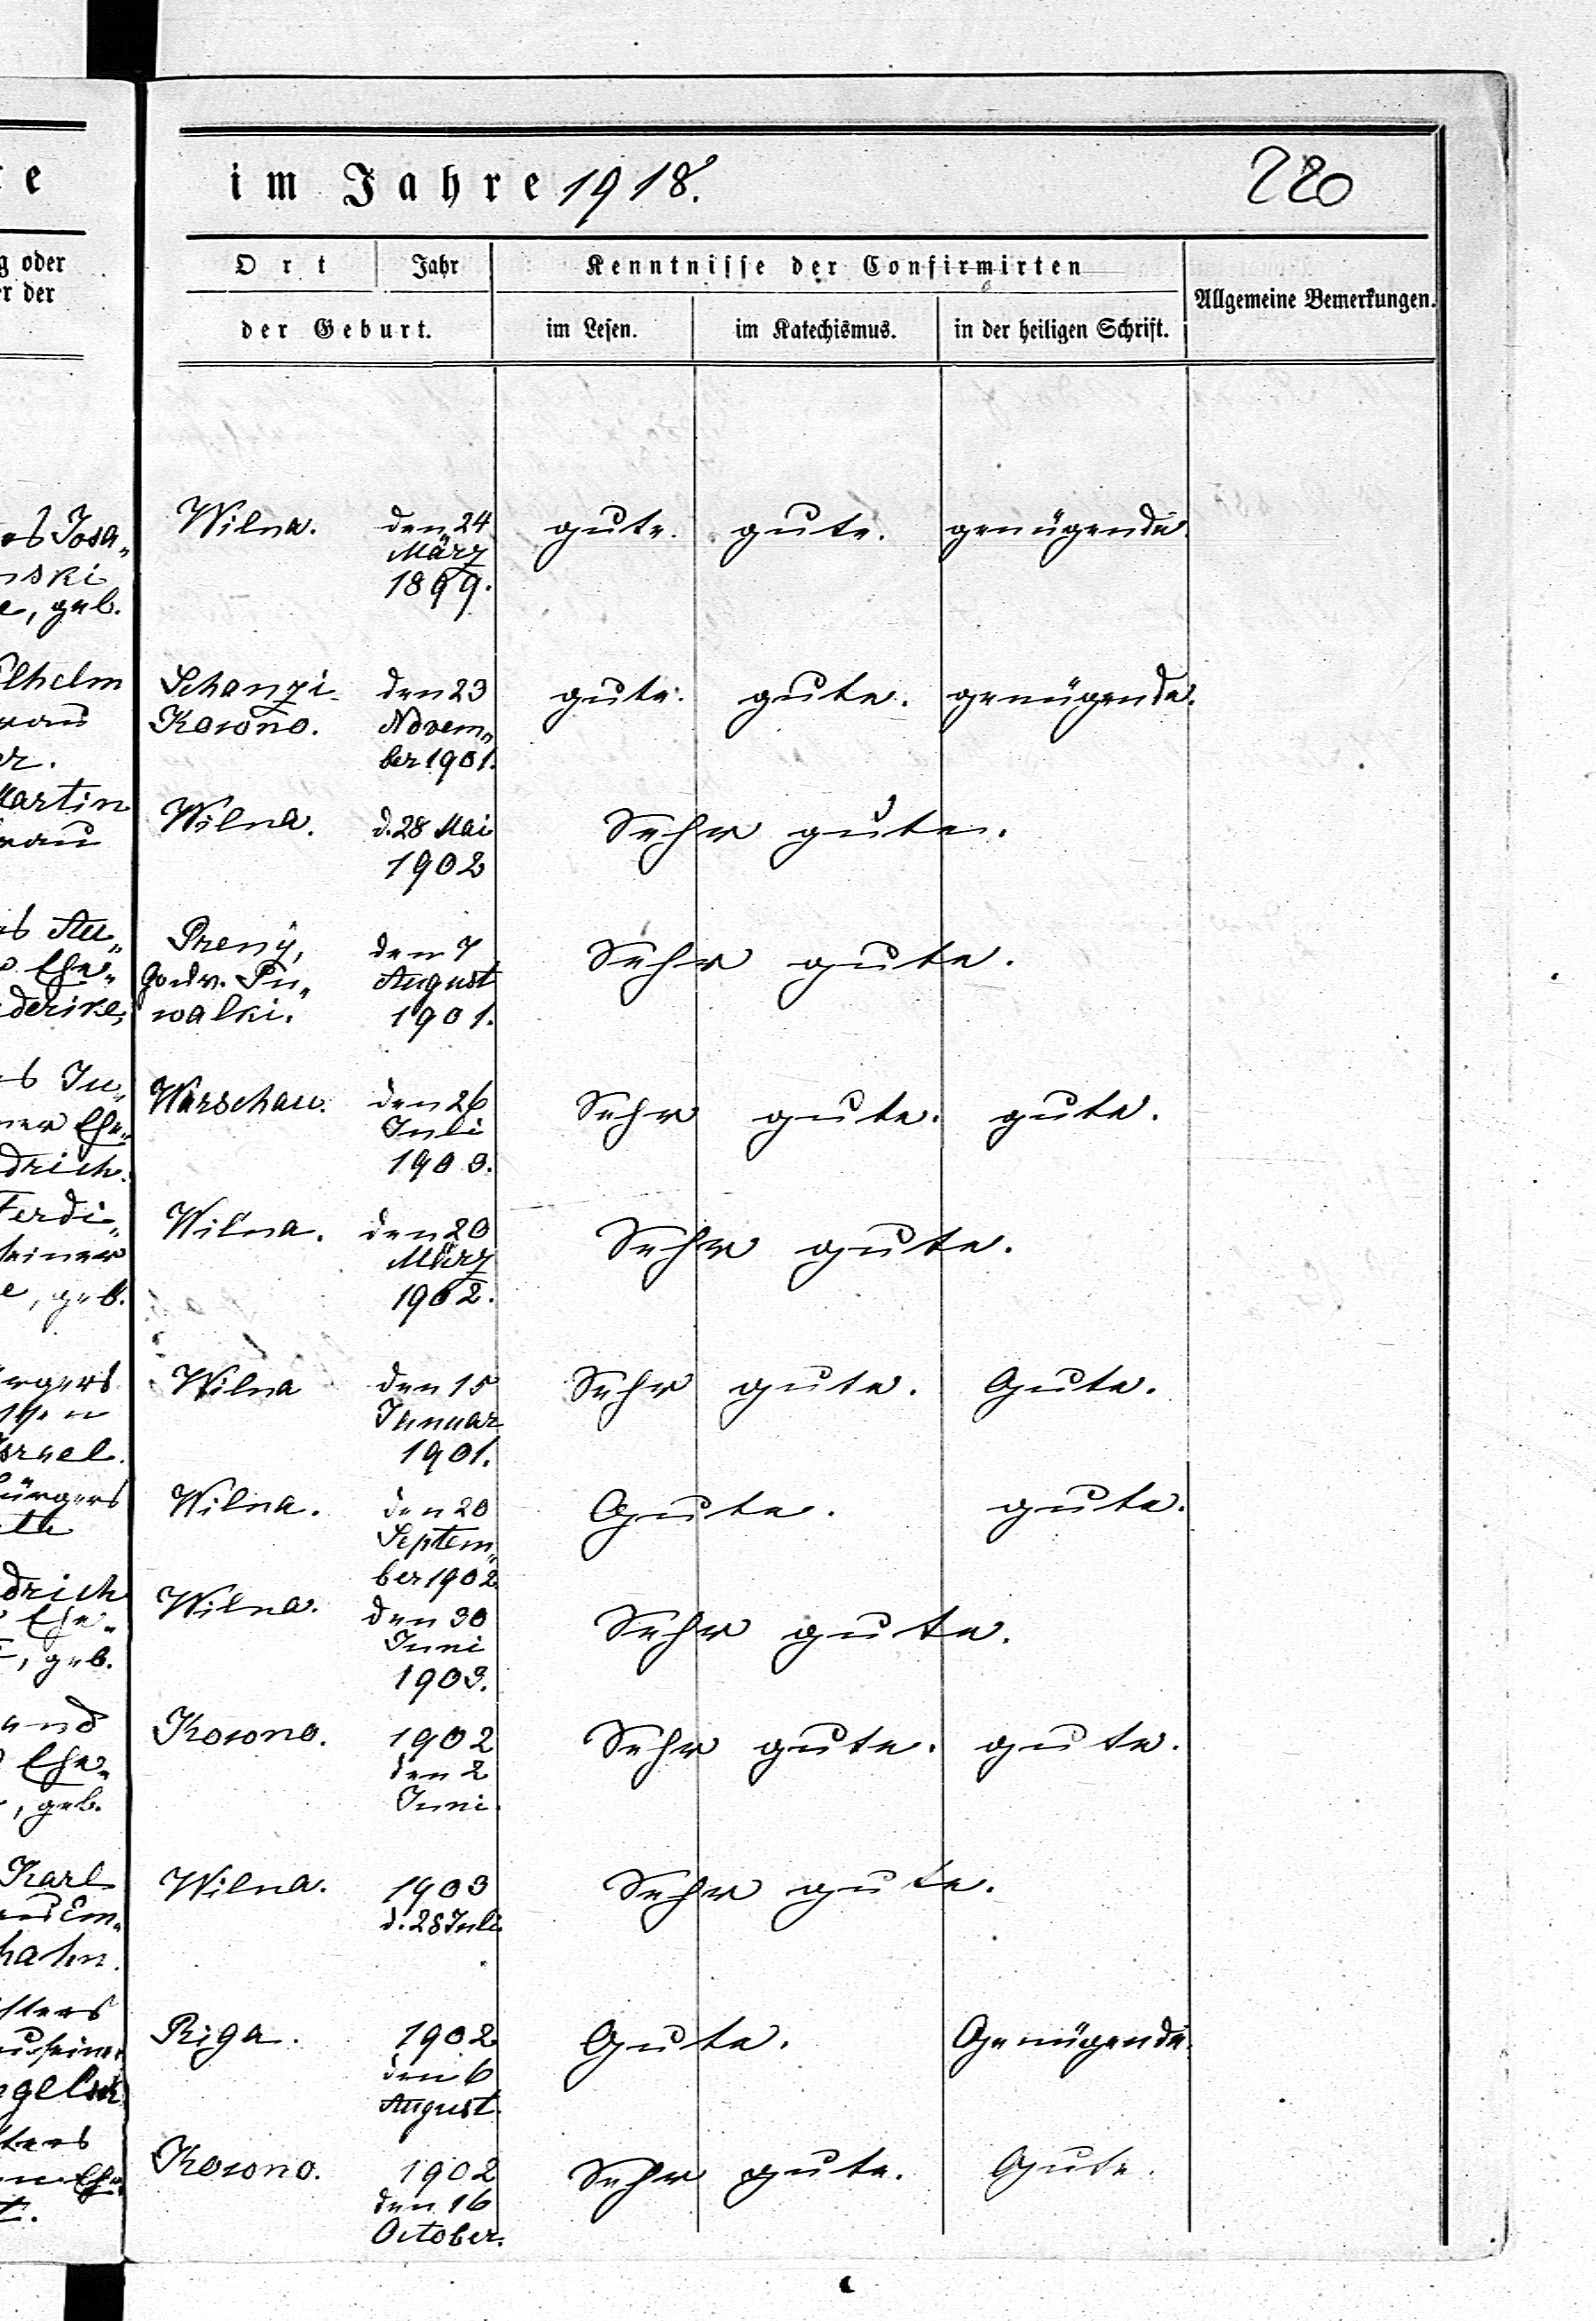 im Jahre 1918.
220
Ort
Jahr
der Geburt.
Kenntnisse der Confirmirten
im Lesen.
im Katechismus.
in der heiligen Schrift.
Allgemeine Bemerkungen.
g oder
er der
Wilna. den 24 gute. gute. genügende.
März
1899.
nski
e, geb.
lhelm
Schanzi- den 23 gute. gute. genügende.
Kowno. Novem„
ber 1901.
er.
Martin
Wilna. d. 28 Mai Sehr gute.
1902
Preny, den 7 Sehr gute.
Gouv. Su„ August
walki. 1901.
Warschau. den 26 Sehr gute. gute.
Juli
1903.
drich.
Ferdi„
Wilna. den 20 Sehr gute.
seiner
März
e, geb. 1902.
Wilna den 15 Sehr gute. Gute.
Januar
1901.
Israel.
Wilna. den 20 Gute. gute.
Septem„
ber 1902.
drich
Wilna. den 30 Sehr gute.
Juni
, geb.
1903.
Kowno. 1902 Sehr gute. gute.
den 2
Juni.
, geb.
Karl
Wilna. 1903 Sehr gute.
d. 28 Juli
hahn.
Riga. 1902 Gute. Genügende.
den 6
August.
Kowno. 1902 Sehr gute. Gute.
den 16
October.